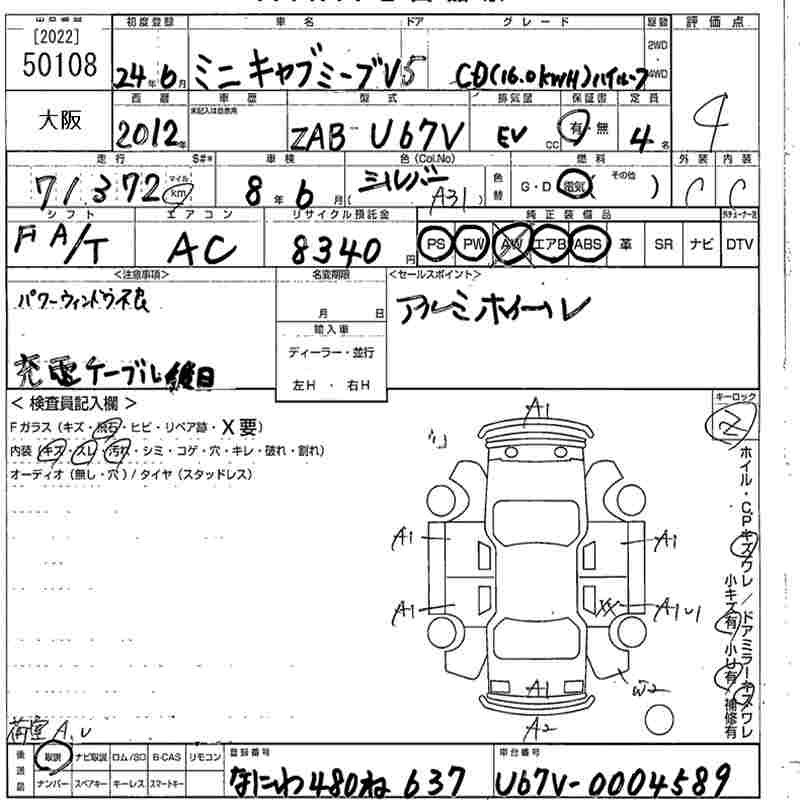 出品番号 初度登録 車名 ドア グレード 駆動 評価点
[2022]
50108 24年6月 ミニキャブミーブV 5 CD(16.0KWH)ハイルーフ 2WD・4WD 4
大阪 西暦 車歴 型式 排気量 保証書 定員
未記入は自家用
2012年 ZAB-U67V EV CC 有・無 4名
走行 S#* 車検 色(Col.No) 色替 燃料 外装 内装
71372 マイル km 8年6月 シルバー (A31) G・D 電気 (その他 ) C C
シフト エアコン リサイクル預託金 純正装備品
FA/T AC 8340円 PS PW AW エアB ABS 革 SR ナビ DTV
<注意事項> 名変期限 <セールスポイント>
パワーウィンドウ不良 月 日 アルミホイール
輸入車
ディーラー・並行
充電ケーブル後日 左H・右H
<検査員記入欄> キーロック
Fガラス(キズ・飛石・ヒビ・リペア跡・X要) 2
内装(キズ・スレ・汚れ・シミ・コゲ・穴・キレ・破れ・割れ)
オーディオ(無し・穴)/タイヤ(スタッドレス)
ホイル・CPキズワレ/ドアミラーキズワレ
小キズ有/小U有/補修有
A1
A1 A1
A1 A1U1
W2
A1
A2
荷室A.U
後送品 取説 ナビ取説 ロム/SD B-CAS リモコン 登録番号 車台番号
ナンバー スペアキー キーレス スマートキー なにわ480ね637 U67V-0004589